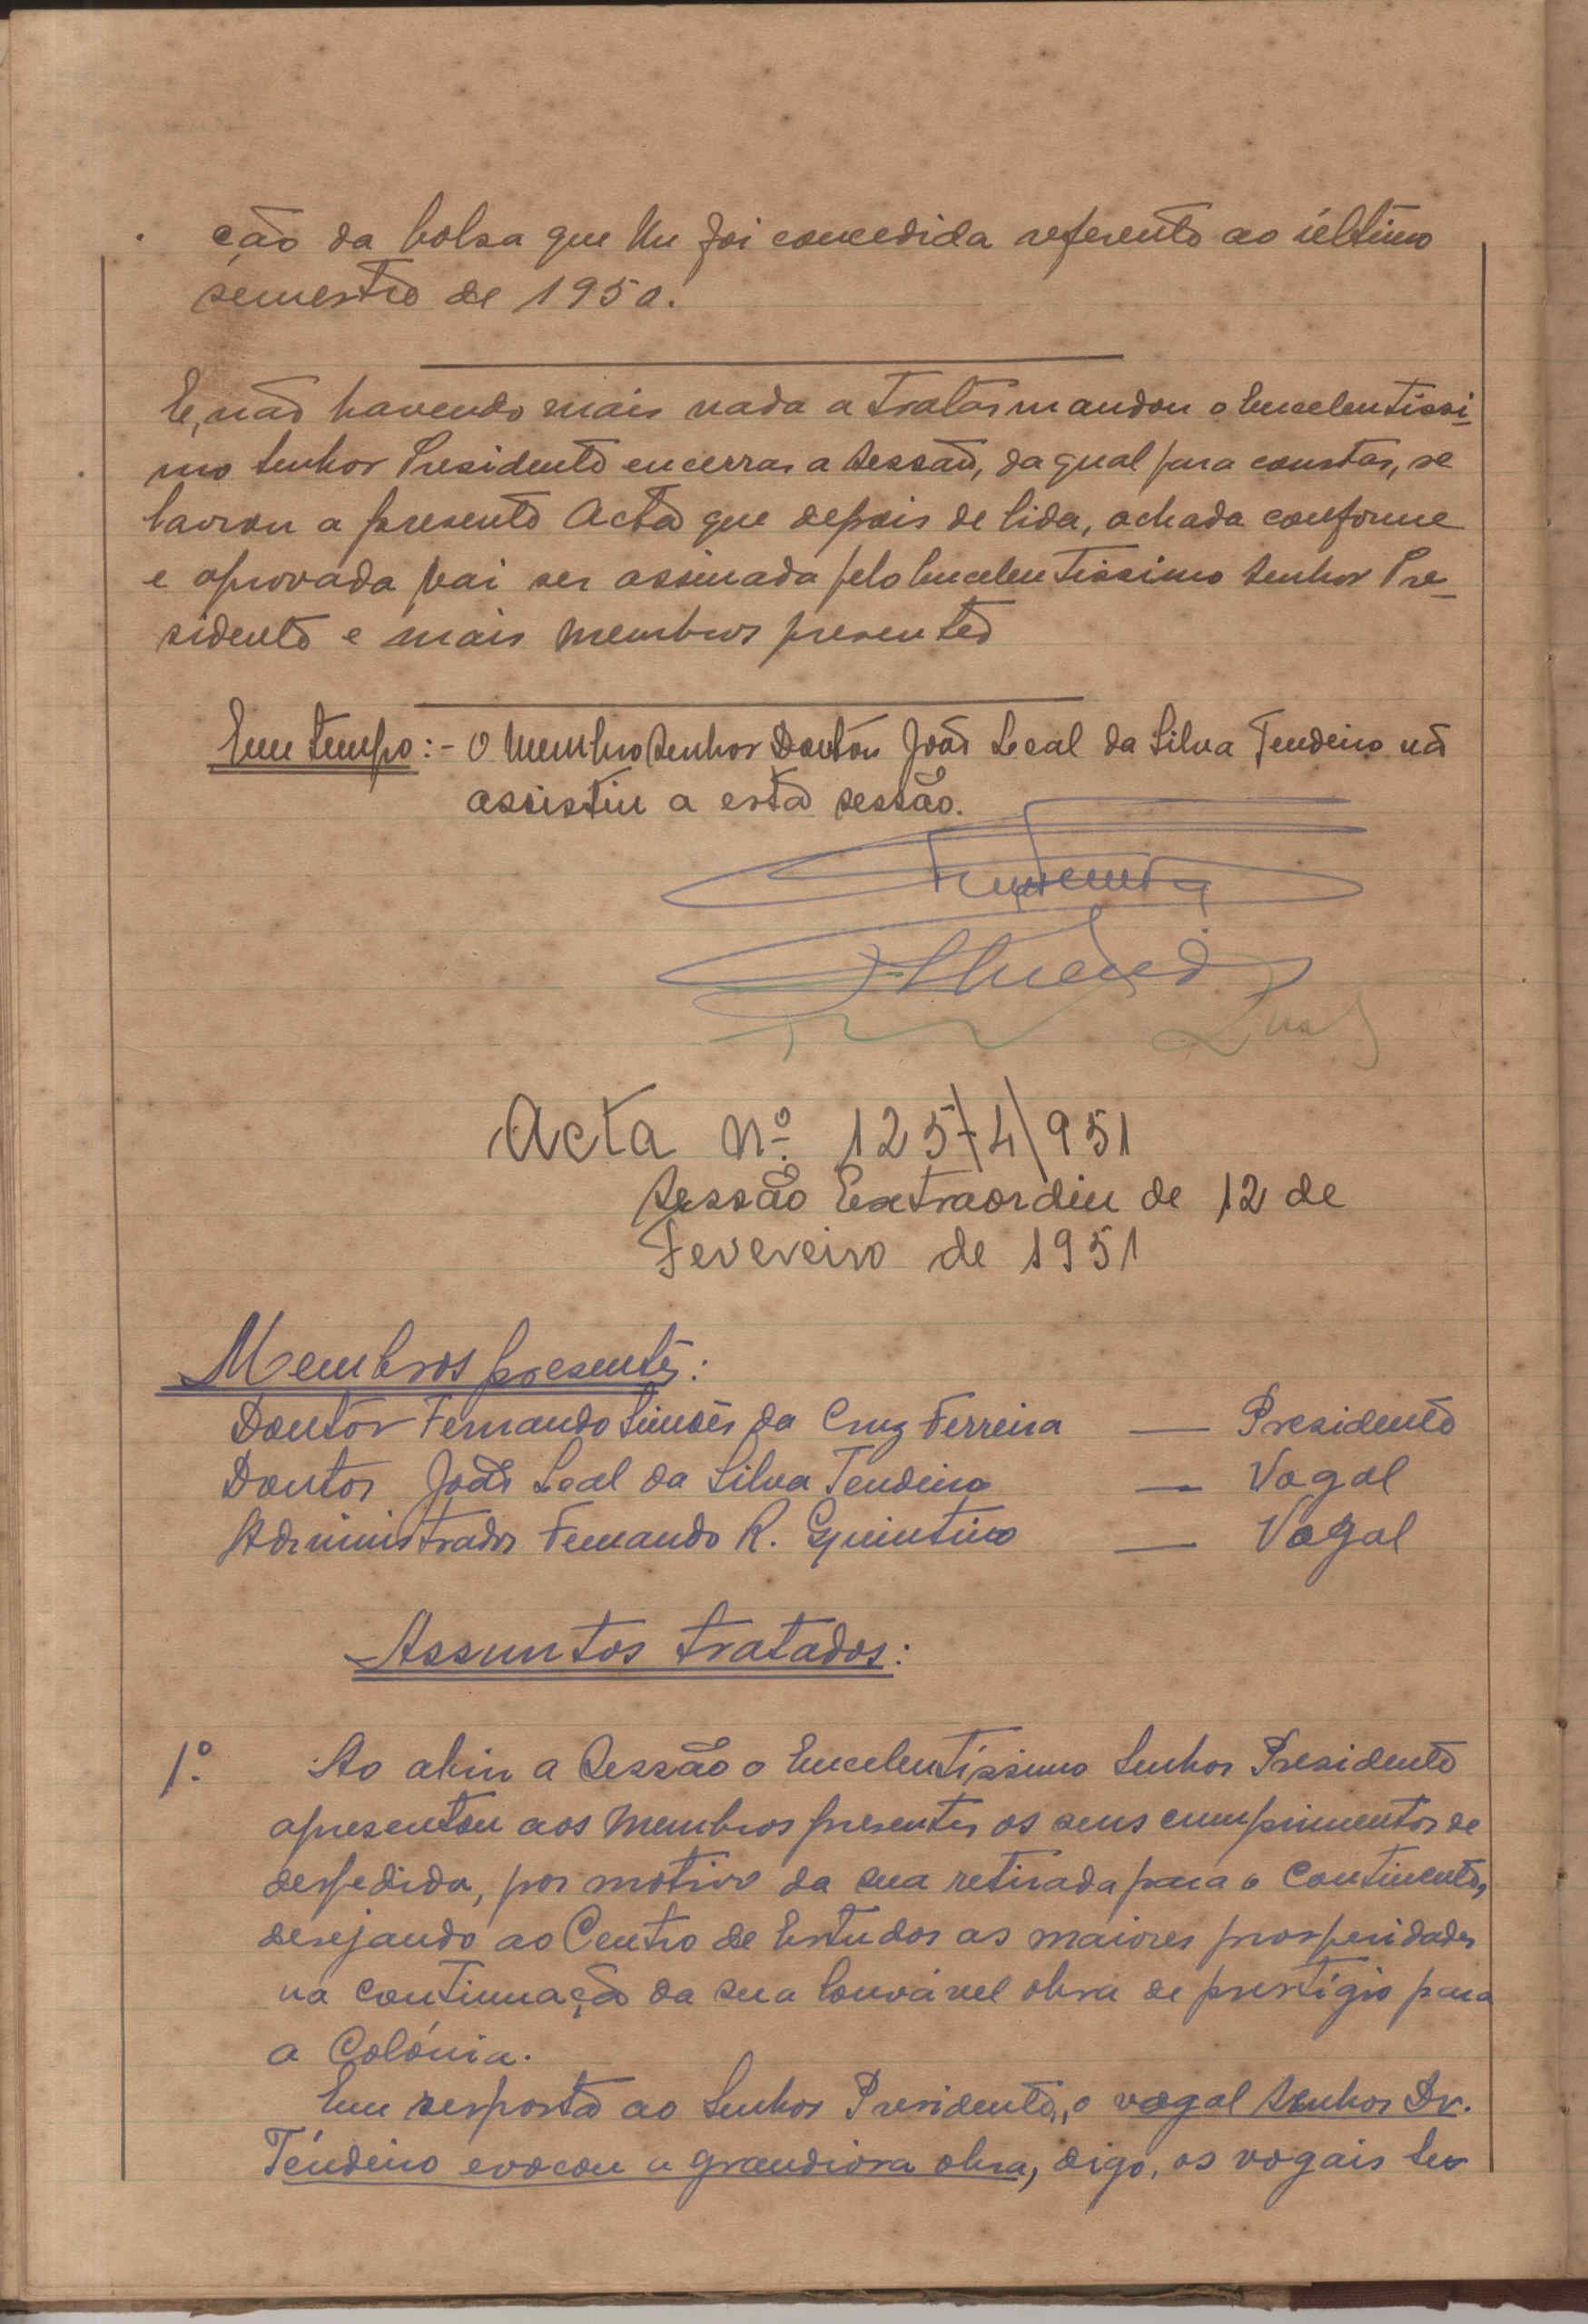 ção da bolsa que lhe foi concedida referente ao último
semestre de 1950.
E, não havendo mais nada a tratar mandou o Excelentíssi-
mo Senhor Presidente encerrar a Sessão, da qual para constar, se
lavrou a presente Acta que depois de lida, achada conforme
e aprovada vai ser assinada pelo Excelentissimo Senhor Pre-
sidente e mais membros presentes
Em tempo:- O Membro Senhor Doutor João Leal da Silva Tendeiro nã
assistiu a esta sessão.
Acta Nº 125/4/951
Sessão Extraordin de 12 de
Fevereiro de 1951
Membros presentes:
Doutor Fernando Simões da Cruz Ferreira — Presidente
Doutor João Leal da Silva Tendeiro — Vogal
Administrador Fernando R. Quintino — Vogal
Assuntos tratados:
1º. Ao abrir a Sessão o Excelentíssimo Senhor Presidente
apresentou aos Membros presentes os seus cumprimentos de
despedida, por motivo da sua retirada para o Continente,
desejando ao Centro de Estudos as maiores prosperidades
na continuação da sua louvável obra de prestígio para
a Colónia.
Em resposta ao Senhor Presidente, o vogal Senhor Dr.
Tendeiro evocou a grandiosa obra, digo, os vogais Se